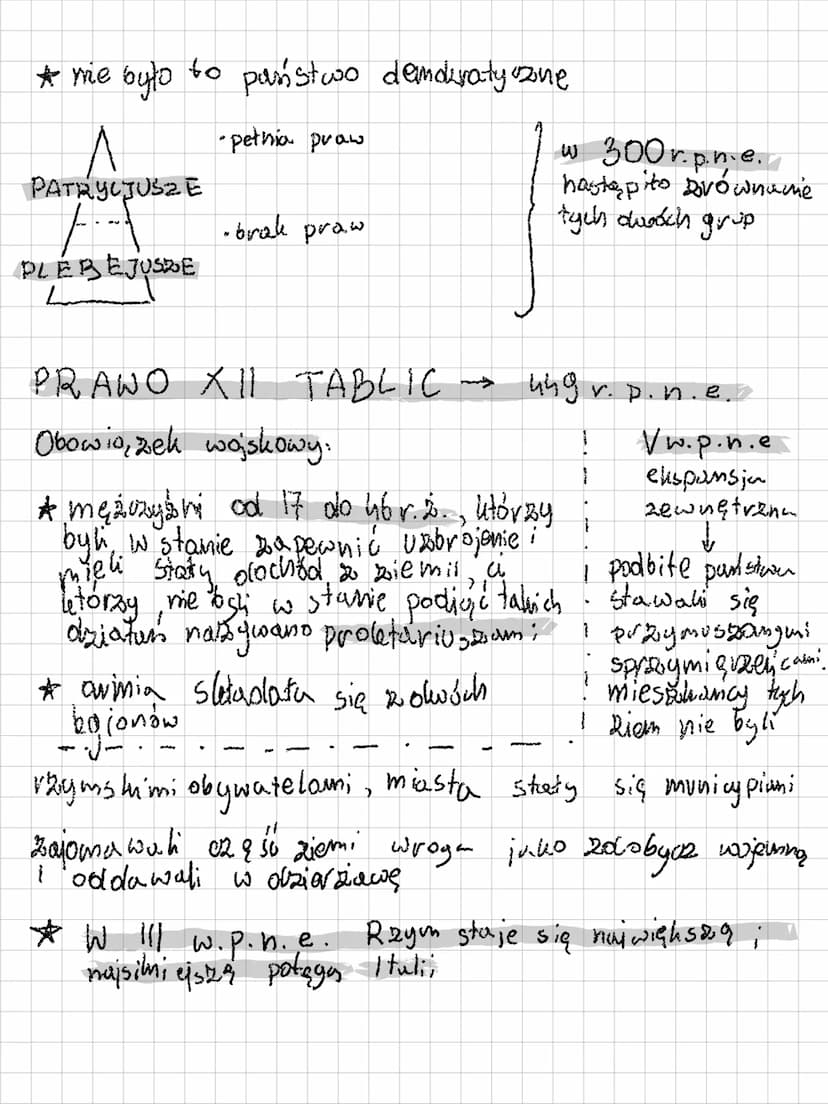 ★ nie było to państwo demokratyczne
PATRYCJUSZE
• pełnia praw
PLEBEJUSZE
• brak praw
w 300 r.p.n.e.
nastąpiło zrównanie
tych dwóch grup
PRAWO XII TABLIC → 449 r. p. n. e.
Obowiązek wojskowy:
★ mężczyźni od 17 do 46 r.ż., którzy
byli w stanie zapewnić uzbrojenie i
mieli stały dochód z ziemii, ci
którzy nie byli w stanie podjąć takich
działań nazywano proletariuszami
★ armia składała się z dwóch
legionów
V w.p.n.e
ekspansja
zewnętrzna
↓
podbite państwa
stawali się
przymuszonymi
sprzymierzeńcami.
mieszkańcy tych
ziem nie byli
rzymskimi obywatelami, miasta stały się municypiami
zajmowali część ziemi wroga jako zdobycz wojenną
i oddawali w dzierżawę
★ W III w.p.n.e. Rzym staje się największą i
najsilniejszą potęgą Italii